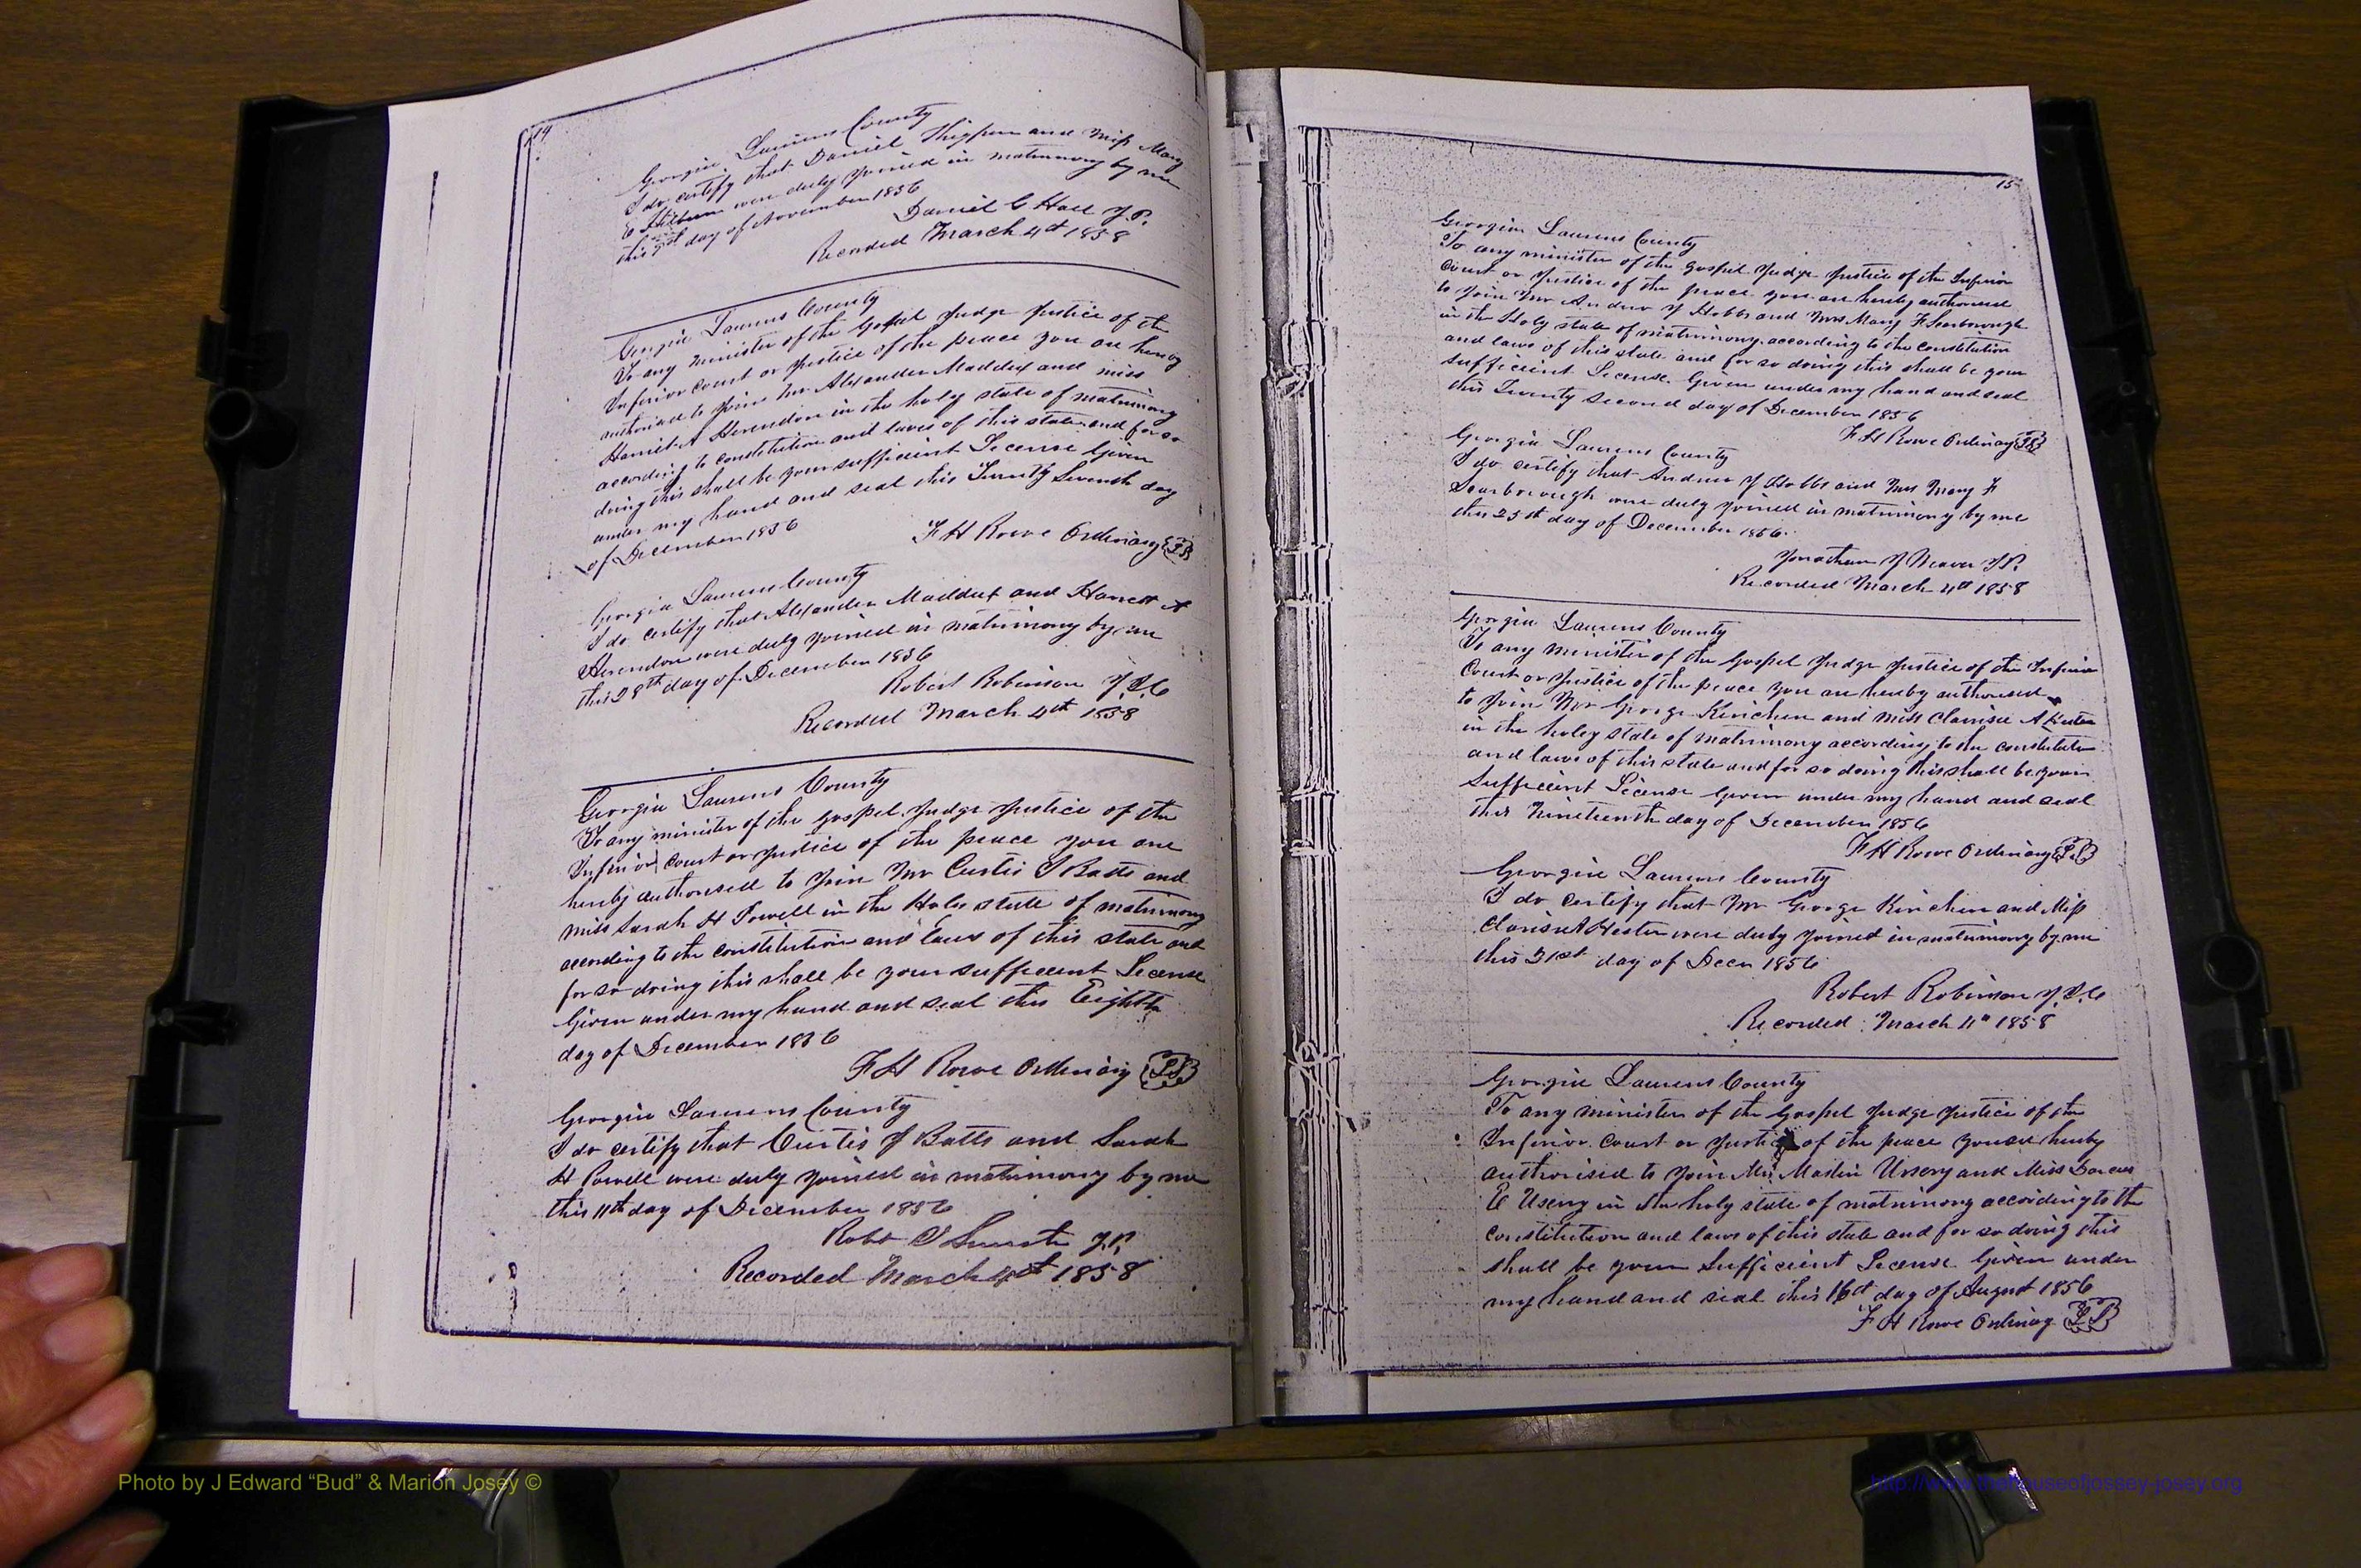 14
Georgia Laurens County
I do certify that Daniel Thigpen and Miss Mary
E were duly joined in matrimony by me
this day of November 1856
Daniel C Hall J.P.
Recorded March 4th 1858
Georgia Laurens County
To any minister of the Gospel Judge Justice of the
Inferior court or Justice of the peace you are hereby
authorised to join Mr Alexander Maddux and miss
Harriet A Herendon in the holy state of matrimony
according to constitution and laws of this state and for so
doing this shall be your sufficient License Given
under my hand and seal this Twenty Seventh day
of December 1856
F H Rowe Ordinary L.S.
Georgia Laurens County
I do certify that Alexander Maddux and Harriett A
Herendon were duly joined in matrimony by me
this 28th day of December 1856
Robert Robinson J.I.C
Recorded March 4th 1858
Georgia Laurens County
To any minister of the gospel Judge Justice of the
Inferior court or Justice of the peace you are
hereby authorised to join Mr Curtis J Batts and
miss Sarah H Powell in the Holy state of matrimony
according to the constitution and laws of this state and
for so doing this shall be your sufficient License
Given under my hand and seal this Eighth
day of December 1856
F H Rowe Ordinary L.S.
Georgia Laurens County
I do certify that Curtis J Batts and Sarah
H Powell were duly joined in matrimony by me
this 11th day of December 1856
Robt J.P.
Recorded March 4th 1858
15
Georgia Laurens County
To any minister of the gospel Judge Justice of the Inferior
Court or Justice of the peace you are hereby authorised
to join Mr Andrew J Hobbs and Mrs Mary F Scarborough
in the Holy state of matrimony according to the constitution
and laws of this state and for so doing this shall be your
sufficient License. Given under my hand and seal
this Twenty Second day of December 1856
F H Rowe Ordinary L.S.
Georgia Laurens County
I do certify that Andrew J Hobbs and Mrs Mary F
Scarborough were duly joined in matrimony by me
this 25th day of December 1856.
Jonathan J Weaver J.P.
Recorded March 4th 1858
Georgia Laurens County
To any minister of the Gospel Judge Justice of the Inferior
Court or Justice of the peace you are hereby authorised
to join Mr George Kinchen and Miss Clarisa A
in the holey state of matrimony according to the constitution
and laws of this state and for so doing this shall be your
Sufficient License Given under my hand and seal
this Nineteenth day of December 1856
F H Rowe Ordinary L.S.
Georgia Laurens County
I do certify that Mr George Kinchen and Miss
Clarisa A Hester were duly joined in matrimony by me
this 21st day of Decr 1856
Robert Robinson J.I.C
Recorded March 4th 1858
Georgia Laurens County
To any minister of the Gospel Judge Justice of the
Inferior Court or Justice of the peace you are hereby
authorised to join Mr Mastin Ussery and Miss
E Ussery in the holy state of matrimony according to the
constitution and laws of this state and for so doing this
shall be your Sufficient License Given under
my hand and seal this 16th day of August 1856
F H Rowe Ordinary L.S.
Photo by J Edward “Bud” & Marion Josey ©
http://www.thehouseofjossey-josey.org